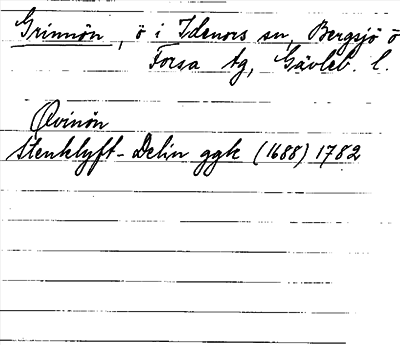 Grinnön, ö i Idenors sn, Bergsjö o
Forsa tg, Gävleb. l.
Qvinön
Stenklyft-Delin ggk (1688) 1782